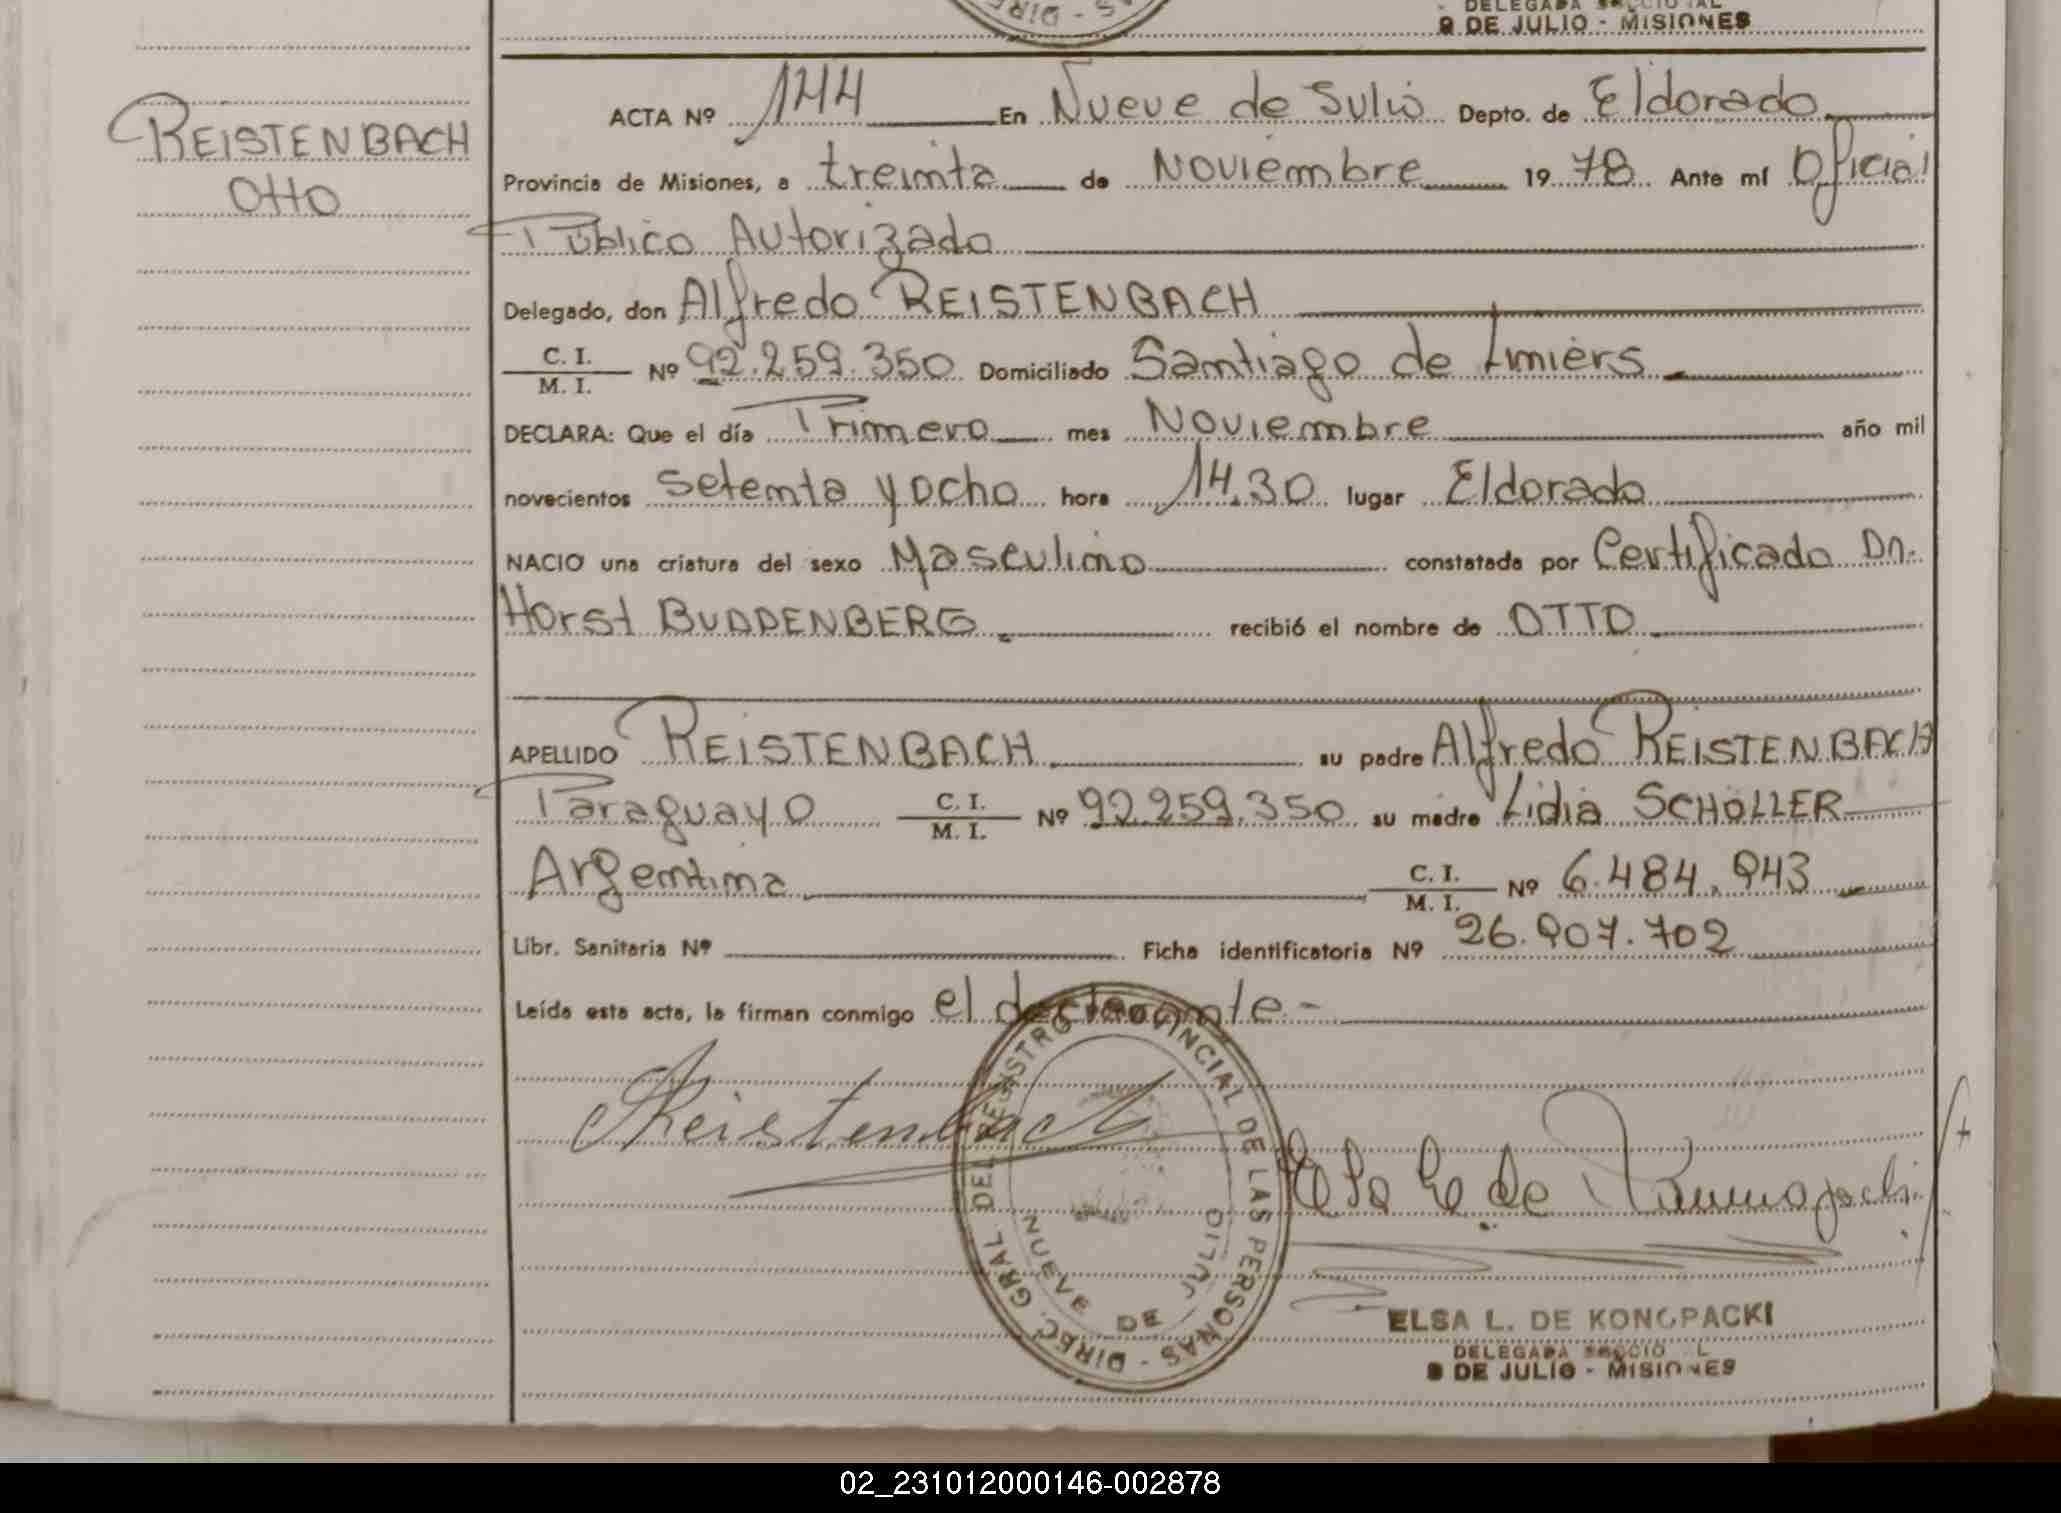 DELEGADA SECCIONAL
9 DE JULIO - MISIONES
REISTENBACH
Otto
ACTA Nº 144 En Nueve de Julio Depto. de Eldorado
Provincia de Misiones, a treinta de Noviembre 1978 Ante mí Oficial
Público Autorizado
Delegado, don Alfredo REISTENBACH
C. I.
M. I. Nº 92.259.350 Domiciliado Santiago de Liniers
DECLARA: Que el día Primero mes Noviembre año mil
novecientos setenta y ocho hora 14.30 lugar Eldorado
NACIO una criatura del sexo Masculino constatada por Certificado Dn.
Horst BUDDENBERG recibió el nombre de OTTO
APELLIDO REISTENBACH su padre Alfredo REISTENBACH
Paraguayo C. I.
M. I. Nº 92.259.350 su madre Lidia SCHÖLLER
Argentina C. I.
M. I. Nº 6.484.943
Libr. Sanitaria Nº Ficha identificatoria Nº 26.907.702
Leída esta acta, la firman conmigo el declarante-
Reistenbach
DIREC. GRAL. DEL REGISTRO PROVINCIAL DE LAS PERSONAS -
NUEVE DE JULIO
ELSA L. DE KONOPACKI
DELEGADA SECCIONAL
9 DE JULIO - MISIONES
02_231012000146-002878